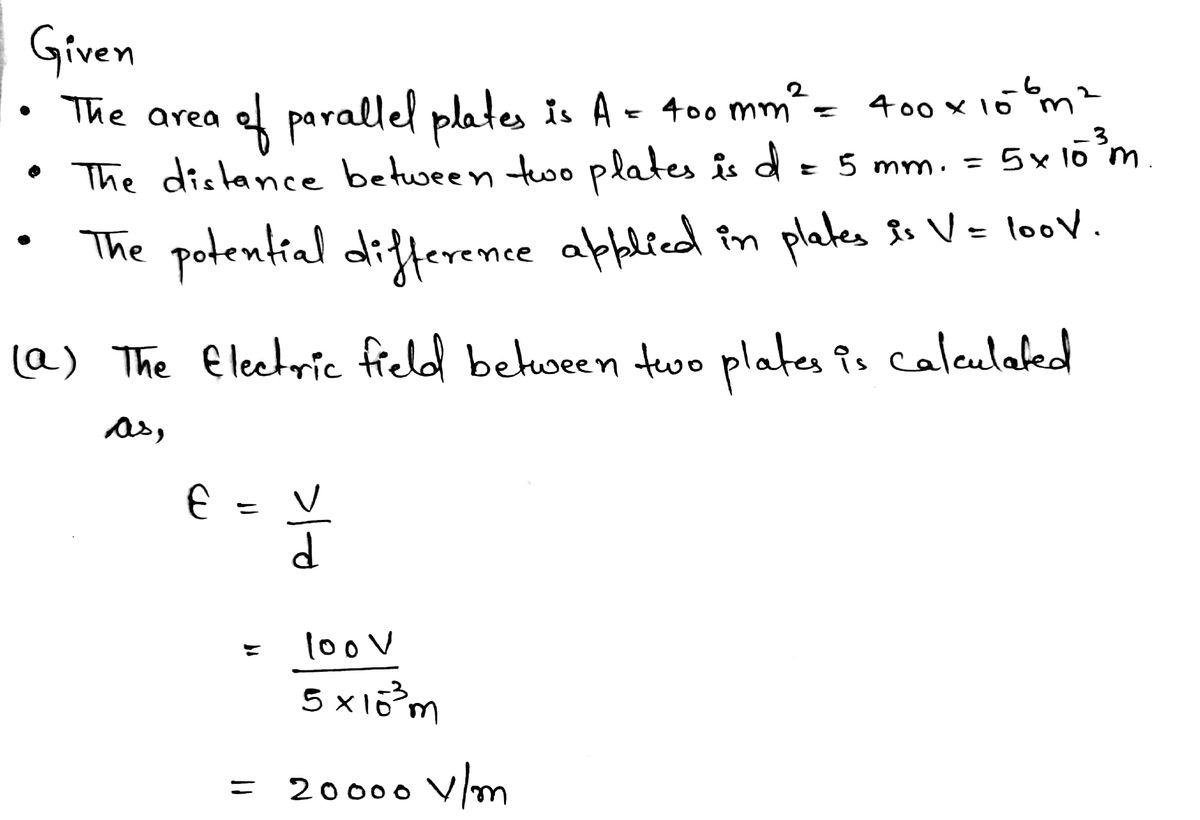 Given
• The area of parallel plates is A = 400 mm² = 400 × 10⁻⁶ m²
• The distance between two plates is d = 5 mm. = 5 × 10⁻³ m.
• The potential difference applied in plates is V = 100V.
(a) The Electric field between two plates is calculated
as,
E = V/d
= 100 V / 5 × 10⁻³ m
= 20000 V/m